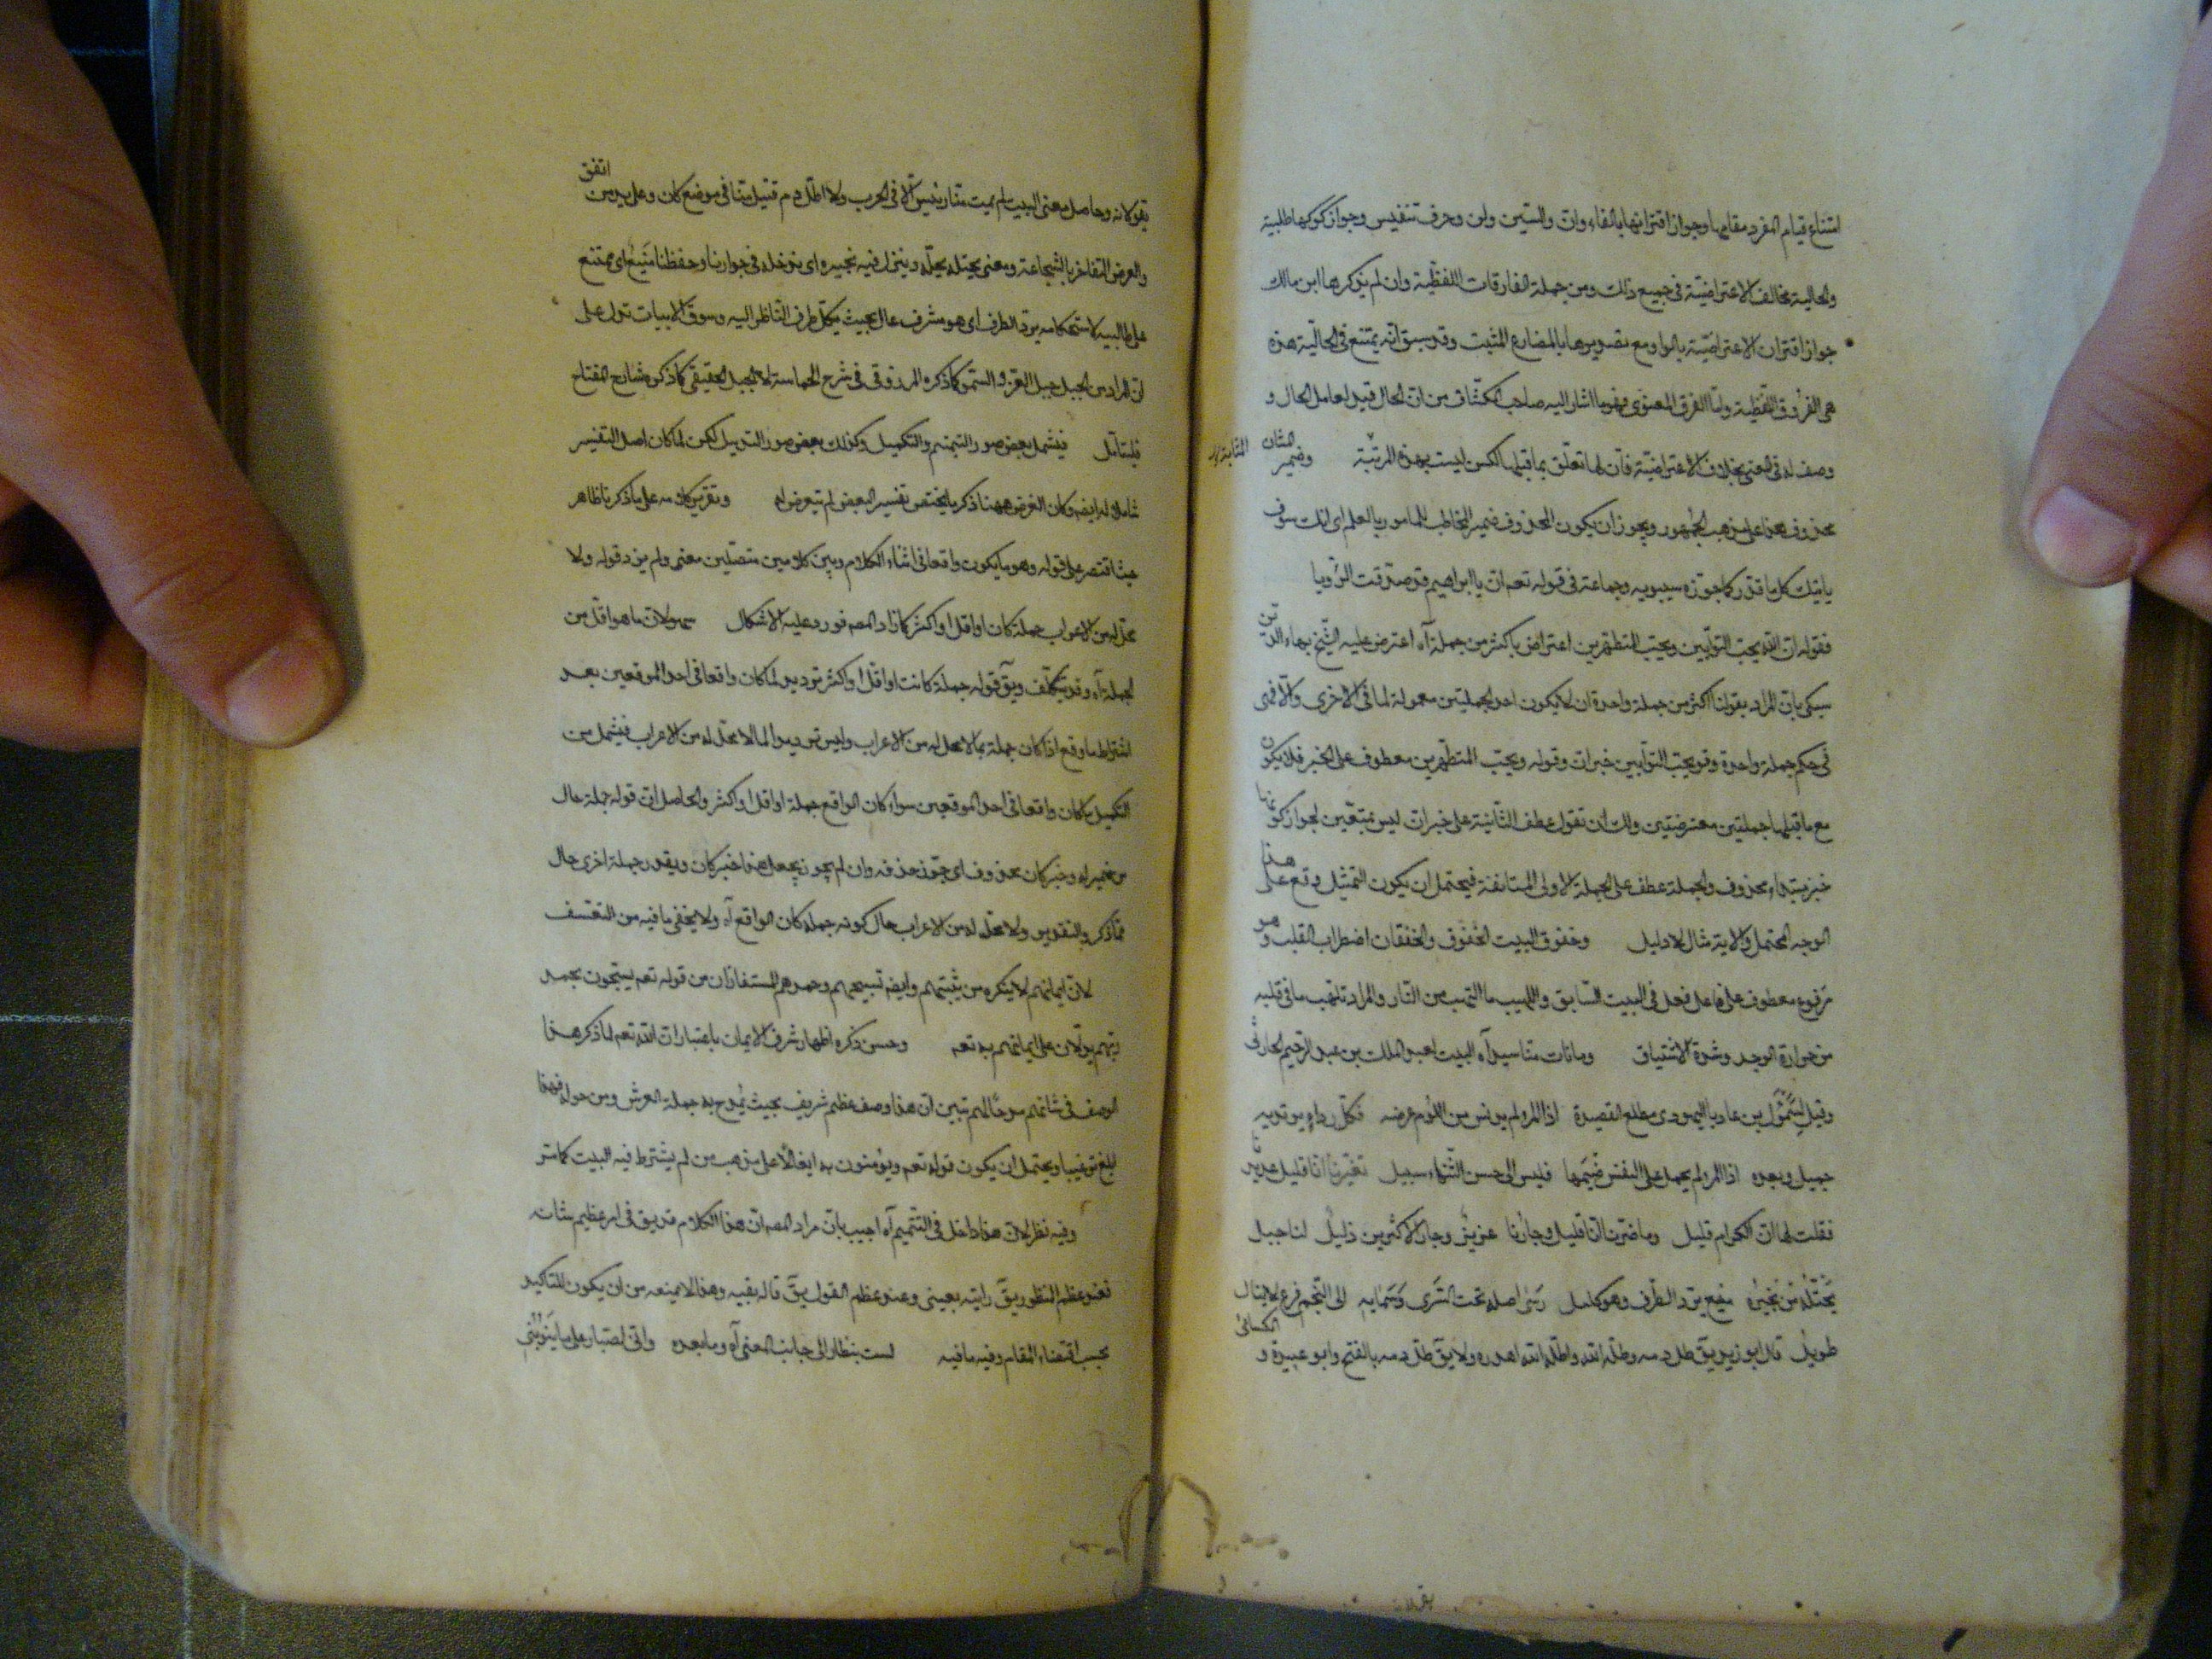 امتناع قيام المفرد مقامها وجواز اقترانها بالفاء وان والسين ولن وحرف تنفيس وجواز كونها طلبية
والحالية تخالف الاعتراضية في جميع ذلك ومن جملة الفارقات اللفظية وان لم يذكرها ابن مالك
جواز اقتران الاعتراضية بالواو مع تصديرها بالمضارع المثبت وقد سبق انه يمتنع في الحالية هذه
هي الفروق اللفظية واما الفرق المعنوي فهو ما اشار اليه صاحب الكشاف من ان الحال قيد لعامل الحال و
وصف له في المعنى بخلاف الاعتراضية فان لها تعلق بما قبلها لكن ليست بهذه المرتبة وضمير الشان
محذوف هذا على مذهب الجمهور ويجوز ان يكون المحذوف ضمير المخاطب المامور بالعلم اى انك سوف
ياتيك كل ما قدر كما جوزه سيبويه وجماعة في قوله تعه ان يا ابراهيم قد صدقت الرؤيا
فقوله ان الله يحب التوابين ويحب المتطهرين اعتراض باكثر من جملة آه اعترض عليه الشيخ بهاء الدين
سبكي بان المراد بقولنا اكثر من جملة واحدة ان لا يكون احد الجملتين معمولة لما في الاخرى والا فهى
في حكم جملة واحدة وقو يحب التوابين خبر ان وقوله ويحب المتطهرين معطوف على الخبر فلا يكون
مع ما قبلها جملتين معترضتين ولك ان تقول عطف الثانية على خبر ان ليس بمتعين لجواز كونها
خبر مبتداء محذوف والجملة عطف على الجملة الاولى المستانفة فيحتمل ان يكون التمثيل وقع على هذا
الوجه المحتمل والاية مثال لا دليل وخفوق البيت الخفوق والخفقان اضطراب القلب وهو
مرفوع معطوف على فاعل فعل في البيت السابق واللهيب ما التهب من النار والمراد تلهب ما في قلبه
من حرارة الوجد وشدة الاشتياق وما مات منا سيد آه البيت لعبد الملك بن عبد الرحيم الحارثى
وقيل لسموئل بن عاديا اليهودى مطلع القصيدة اذا المرء لم يدنس من اللؤم عرضه فكل رداء يرتديه
جميل وبعده اذا المرء لم يحمل على النفس ضيمها فليس الى حسن الثناء سبيل تعيرنا انا قليل عديدنا
فقلت لها ان الكرام قليل وما ضرنا انا قليل وجارنا عزيز وجار الاكثرين ذليل لنا جبل
يحتله من نجيره منيع يرد الطرف وهو كليل رسى اصله تحت الثرى وسما به الى النجم فرع لا ينال
طويل قال ابو زيد يق طل دمه وطله الله واطله الله اهدره ولا يق طل دمه بالفتح وابو عبيدة و الكسائى
يقولانه وحاصل معنى البيت لم يمت منا رئيس الا في الحرب ولا اطل دم قتيل منا في موضع كان وعلى يد من اتفق
والغرض التفاخر بالشجاعة ومعنى يحتله يحله وينزل فيه نجيره اى ندخله في جوارنا وحفظنا منيع اى ممتنع
على طالبيه لاستحكامه يرد الطرف اى هو مشرف عال بحيث يكل طرف الناظر اليه وسوق الابيات تدل على
ان المراد من الجبل جبل العز و السمو كما ذكره المرزوقى في شرح الحماسة لا الجبل الحقيقى كما ذكره شارح المفتاح
فليتامل فيشمل بعض صور التتميم والتكميل وكذلك بعض صور التذييل لكن لما كان اصل التفسير
شاملا له ايضه وكان الغرض ههنا ذكر ما يختص بتفسير البعض لم يتعرض له وتقرير كلامه على ما ذكرنا ظاهر
حيث اقتصر على قوله وهو ما يكون واقعا في اثناء الكلام وبين كلامين متصلين معنى ولم يزد قوله ولا
محل له من الاعراب جملة كان او اقل او اكثر كما زاد المصه فورد عليه الاشكال سهو لان ما هو اقل من
الجملة آه وقد يتكلف ويق قوله جملة كانت او اقل او اكثر ترديد لما كان واقعا في احد الموقعين بعد
اشتراط ما وقع اذا كان جملة بما لا محل له من الاعراب وليس ترديدا لما لا محل له من الاعراب فيشمل من
التكميل ما كان واقعا في احد الموقعين سواء كان الواقع جملة او اقل او اكثر والحاصل ان قوله جملة حال
من ضمير له وخبر كان محذوف اى جوز حذفه وان لم يجوز يجعل هذا خبر كان ويقدر جملة اخرى حال
مما ذكر والتقدير ولا محل له من الاعراب حال كونه جملة كان الواقع آه ولا يخفى ما فيه من التعسف
لان ايمانهم لا ينكره من يثبتهم وايضه تسبيحهم وحمدهم المستفادان من قوله تعه يسبحون بحمد
ربهم يدلان على ايمانهم به تعه وحسن ذكره اظهار شرف الايمان باعتبار ان الله تعه لما ذكر هذا
الوصف في شانهم مدحا لهم تبين ان هذا وصف عظيم شريف بحيث يمدح به حملة العرش ومن حوله فهذا
ابلغ ترغيبا ويحتمل ان يكون قوله تعه ويؤمنون به ايغالا على مذهب من لم يشترط فيه البيت كما مر
وفيه نظر لان هذا داخل في التتميم آه اجيب بان مراد المصه ان هذا الكلام قد يق في امر عظيم شانه
فعند عظم المنظور يق رايته بعينى وعند عظم القول يق قاله بفيه وهذا لا يمنعه من ان يكون للتاكيد
بحسب اقتضاء المقام وفيه ما فيه لست بنظار الى جانب الغنى آه وما بعده وانى لصبار على ما ينوبنى